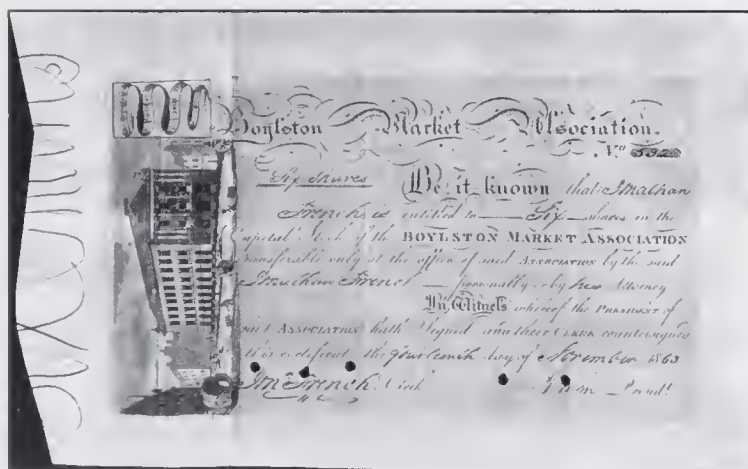 Boylston Market Association.
No
Six Shares Be it known that Jonathan
French is entitled to Six shares in the
Capital Stock of the BOYLSTON MARKET ASSOCIATION
transferable only at the office of said ASSOCIATION by the said
Jonathan French personally or by his Attorney
In Witness whereof the PRESIDENT of
said ASSOCIATION hath signed and their CLERK countersigned
this certificate the fourteenth day of November 1863
Jn. French. Clerk Presidt.